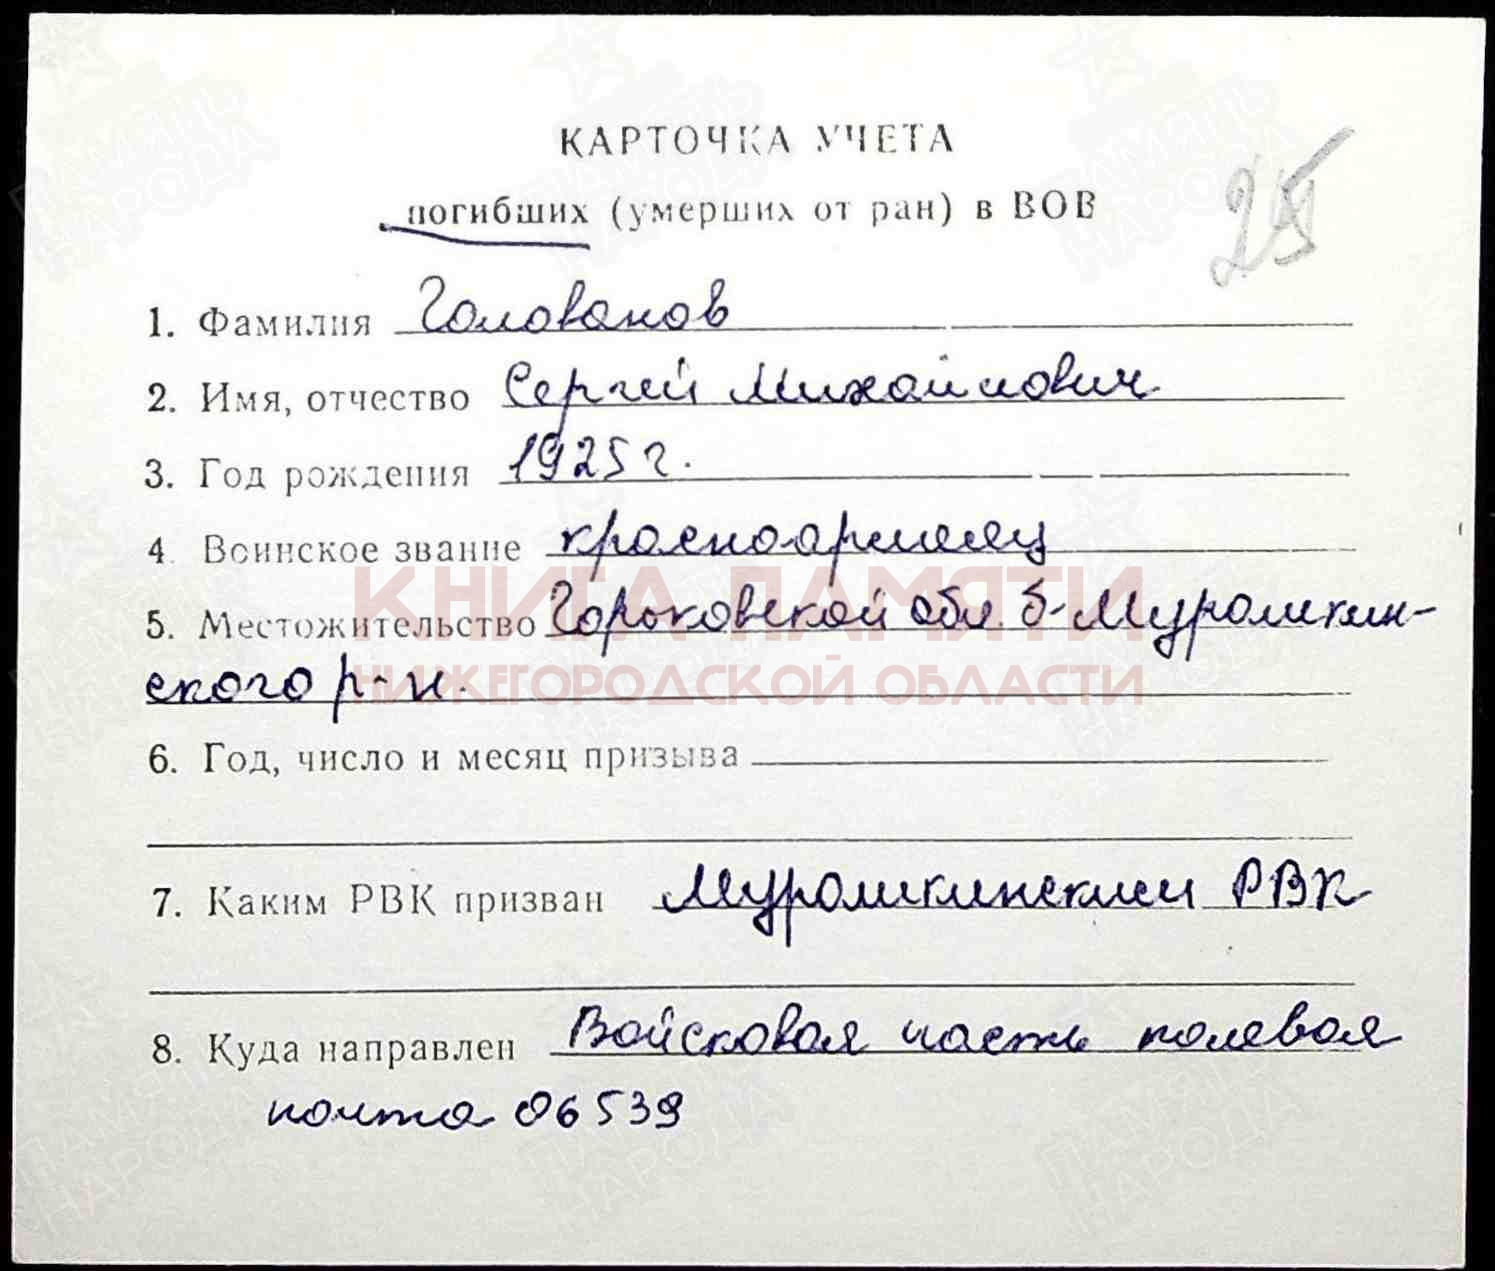 КАРТОЧКА УЧЕТА
погибших (умерших от ран) в ВОВ
25
1. Фамилия Голованов
2. Имя, отчество Сергей Михайлович
3. Год рождения 1925 г.
4. Воинское звание красноармеец
КНИГА ПАМЯТИ
5. Местожительство Горьковской обл. Б-Мурашкин-
ского р-н.
НИЖЕГОРОДСКОЙ ОБЛАСТИ
6. Год, число и месяц призыва
7. Каким РВК призван Мурашкинским РВК
8. Куда направлен Войсковая часть полевая
почта 06539
ПАМЯТЬ НАРОДА